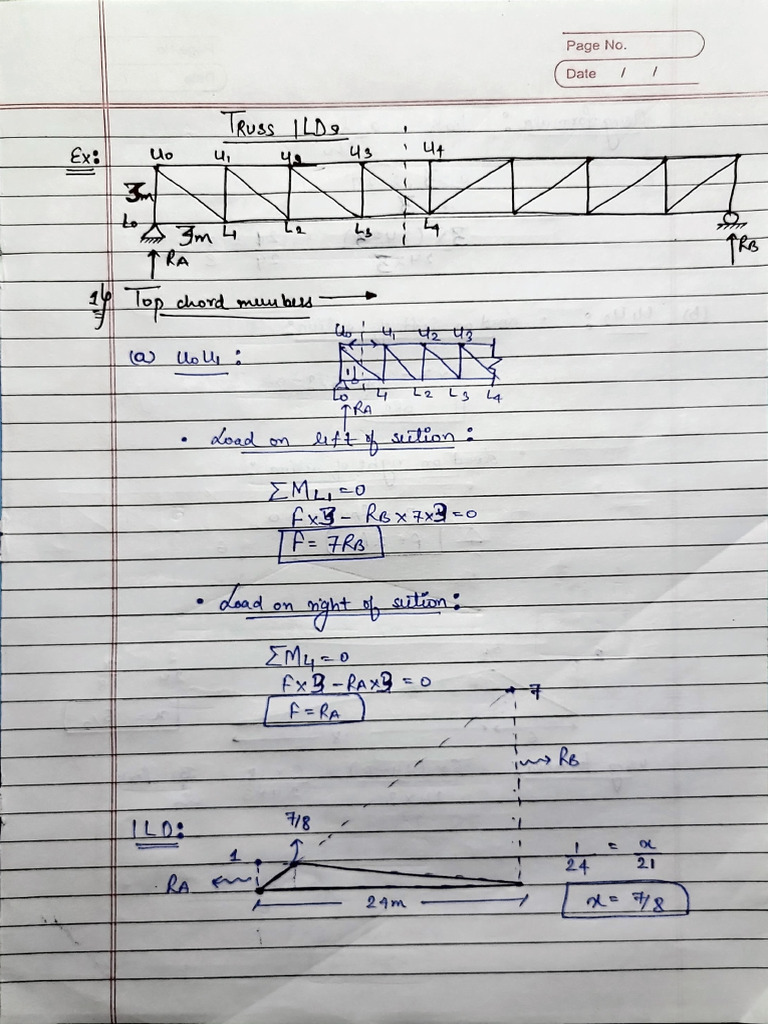 Page No.
Date / /
TRUSS ILDs
Ex:
U0 U1 U2 U3 U4
3m
L0 3m L1 L2 L3 L4
RA RB
1) Top chord members →
(a) U0U1:
U0 U1 U2 U3
L0 L1 L2 L3 L4
RA
• Load on left of section:
ΣML1 = 0
F×3 - RB × 7×3 = 0
F = 7RB
• Load on right of section:
ΣML1 = 0
F×3 - RA×3 = 0
F = RA
7
RB
ILD:
7/8
1
RA
24m
1/24 = x/21
x = 7/8